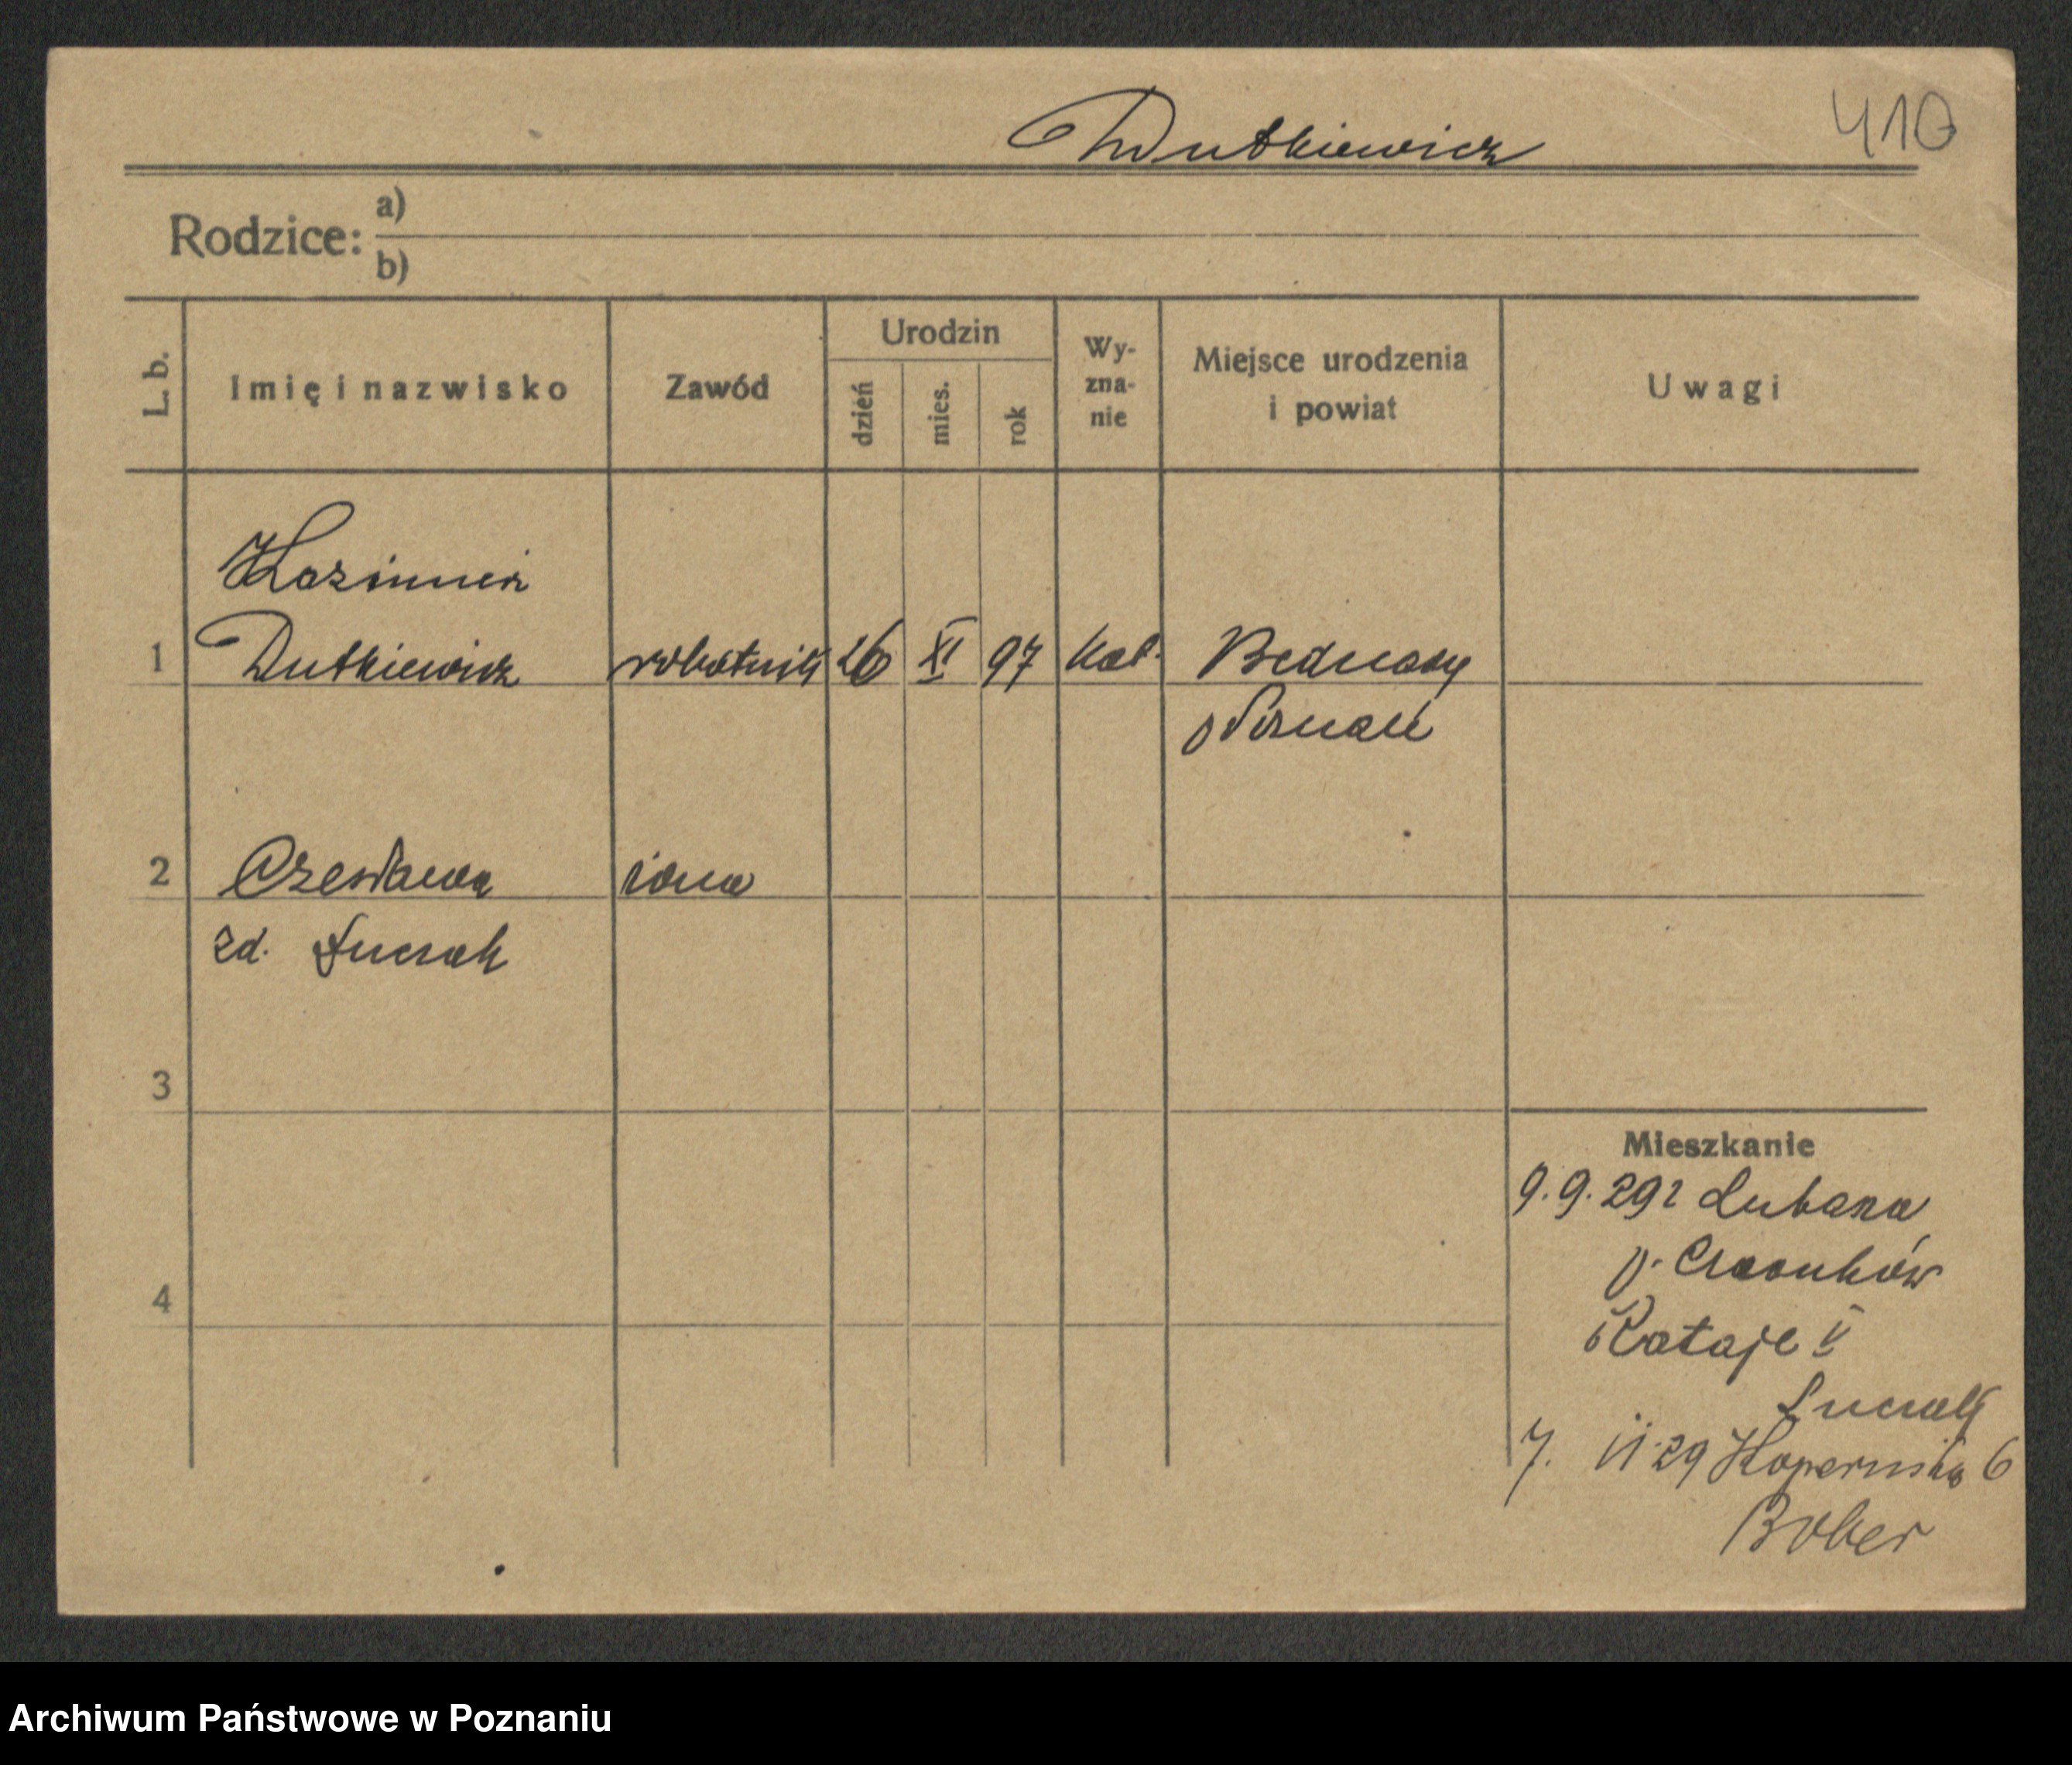 Dutkiewicz
410
Rodzice: a)
b)
L. b.
Imię i nazwisko
Zawód
Urodzin
dzień
mies.
rok
Wy-
zna-
nie
Miejsce urodzenia
i powiat
Uwagi
Kazimierz
1 Dutkiewicz robotnik 26 XI 97 kat. Bednary
p Poznań
2 Czesława żona
zd. Łuczak
3
4
Mieszkanie
9.9.29 z Lubasza
p. Czarnków
Rataje V
Łuczak
7. VI 29 Kopernika 6
Bober
Archiwum Państwowe w Poznaniu